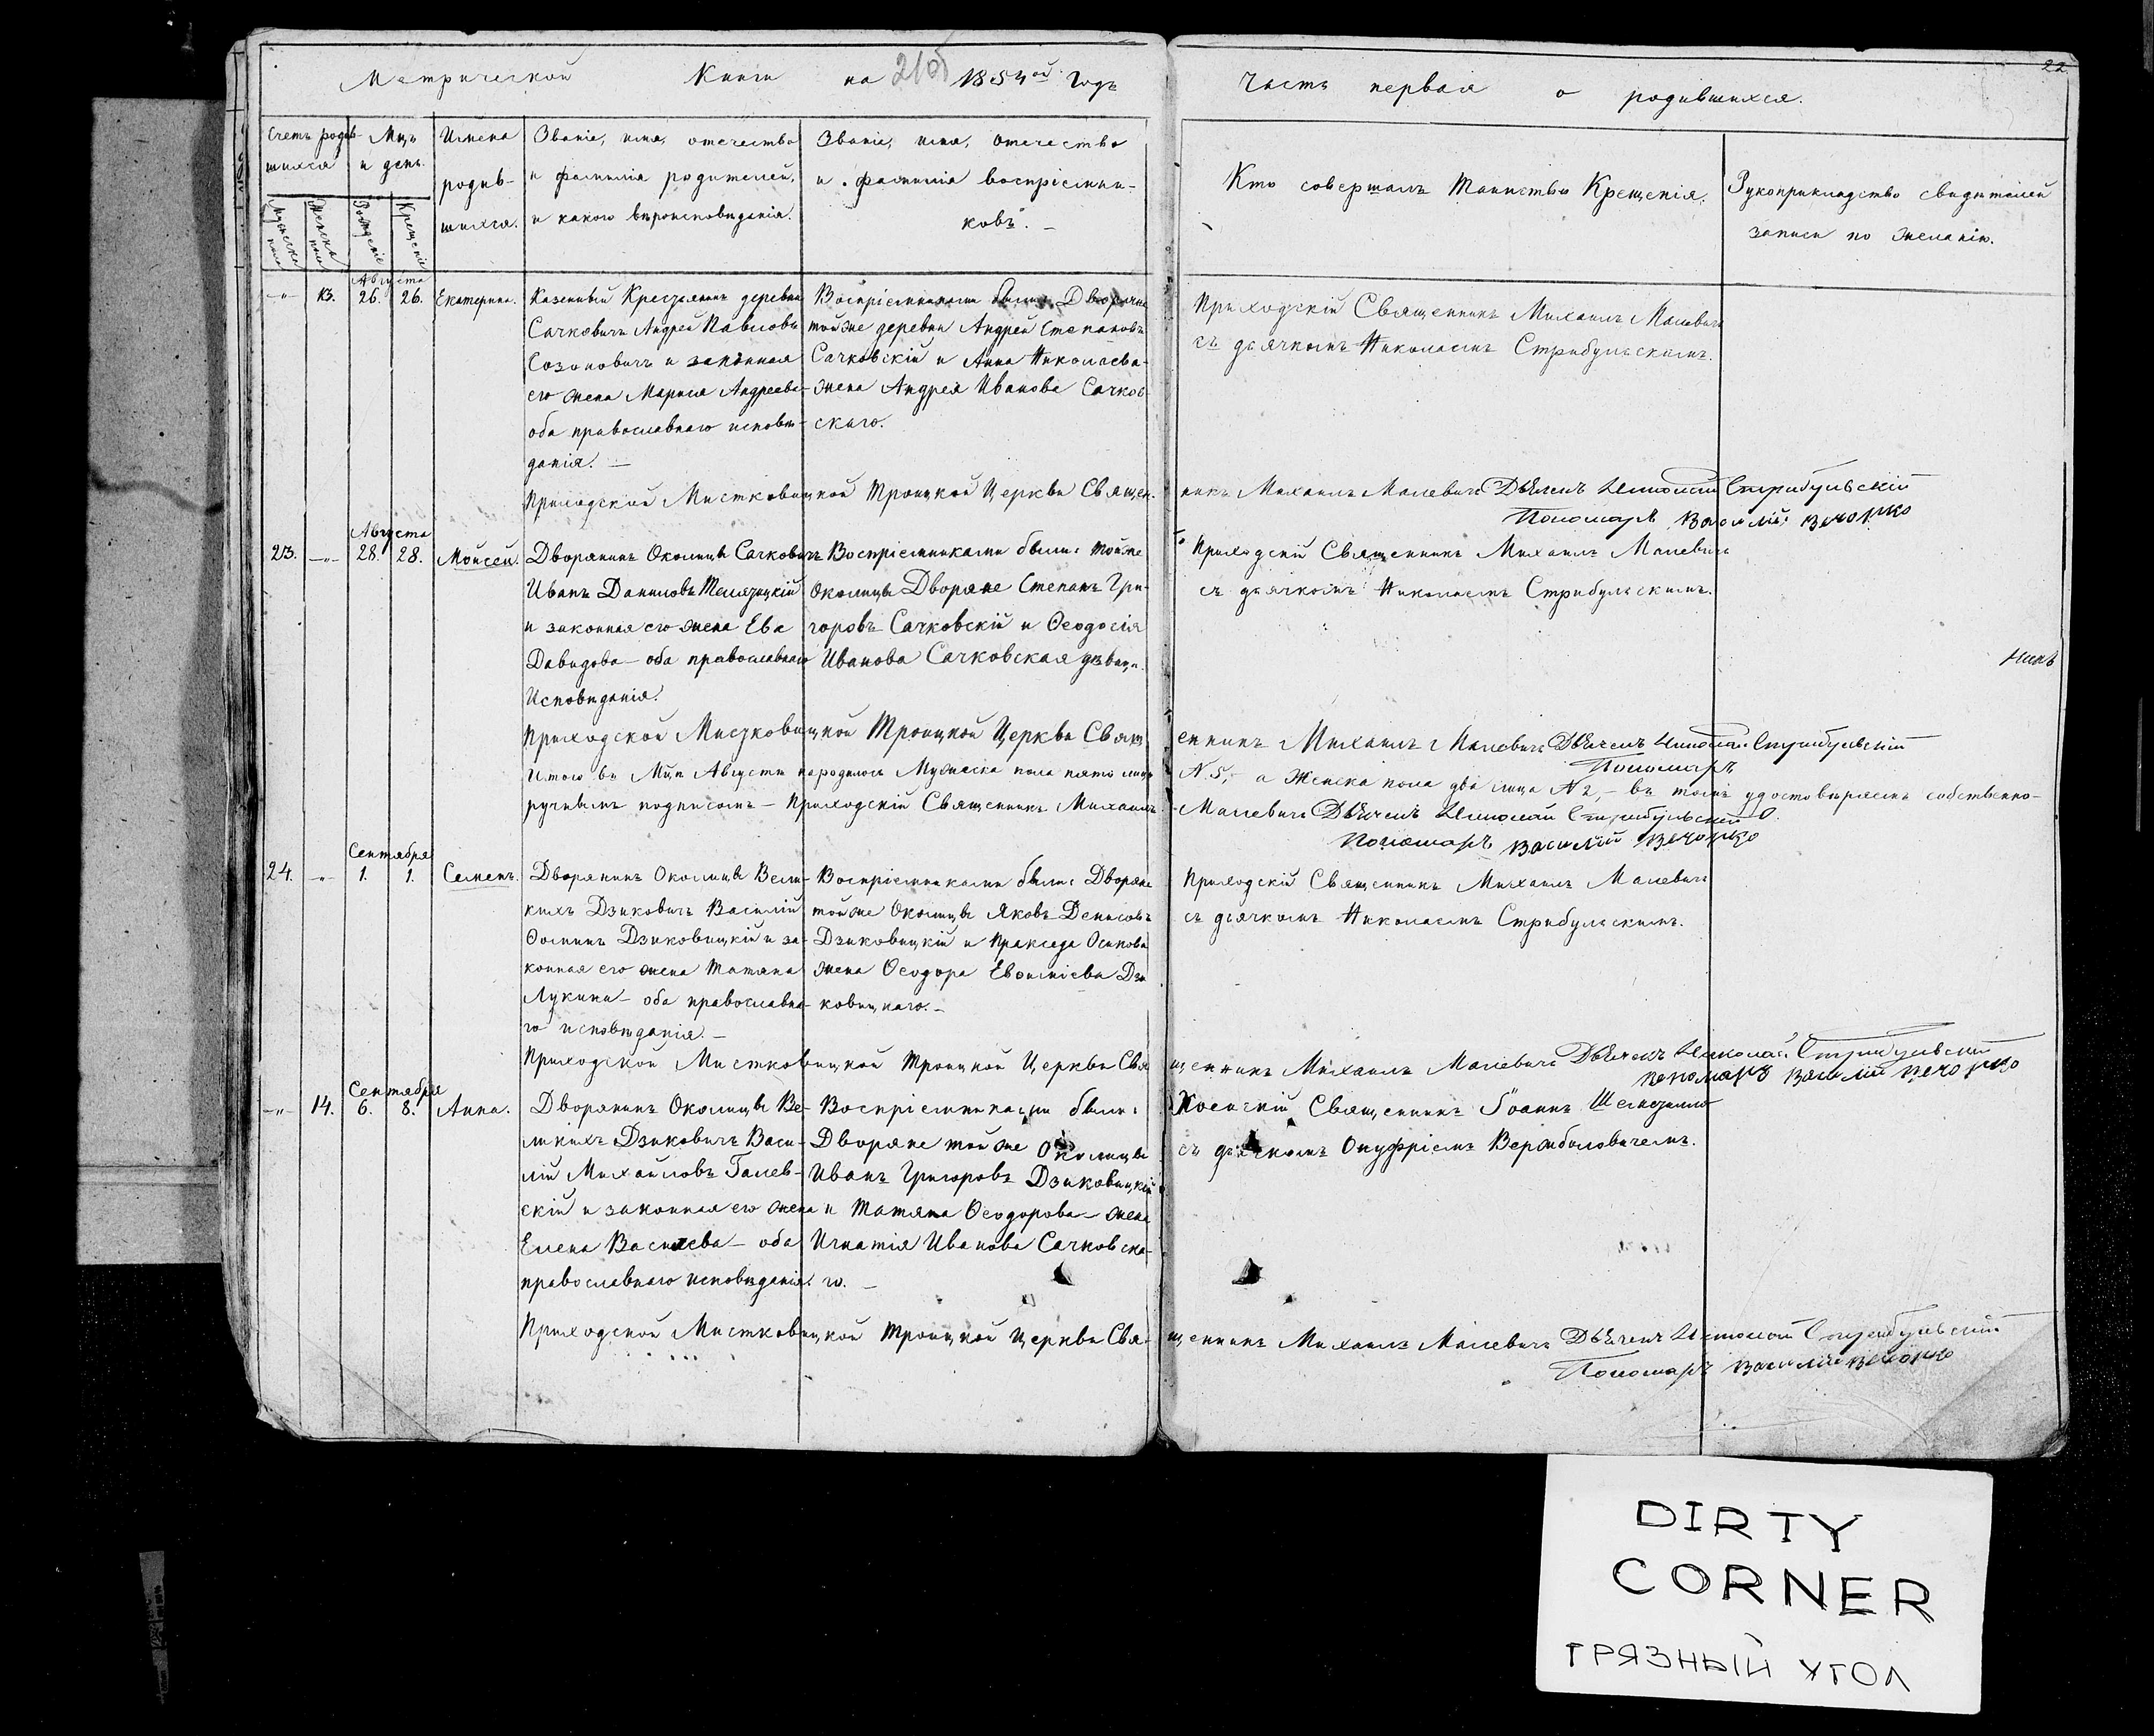 Метрической Книги на 21об 1854ой Годъ
Часть первая о родившихся.
22
Счетъ родив-
шихся
Мужеска пола
Женска пола
Мцъ
и день.
Рожденіе
Крещеніе
Имена
родив-
шихся.
Званіе, имя, отечество
и фамилія родителей,
и какого вѣроисповѣданія.
Званіе, имя, отечество
и фамилія воспріемни-
ковъ. —
Кто совершалъ Таинство Крещенія.
Рукоприкладство свидѣтелей
записи по желанію.
Августа
—„— 13. 26. 26. Екатерина.
Казенный Крестьянинъ деревни
Сачковичъ Андрей Павловъ
Созоновичъ и законная
его жена Марыя Андреева
оба православнаго исповѣ-
данія. —
Воспріемниками были: Дворяне
той же деревни Андрей Степановъ
Сачковскій и Анна Николаева-
жена Андрея Иванова Сачков-
скаго.
Приходскій Священникъ Михаилъ Малевичъ
съ дьячкомъ Николаемъ Стрибульскимъ.
Приходской Мистковицкой Троицкой Церкви Священ-
никъ Михаилъ Малевичъ Дьячекъ Николай Стрибульскій
Пономарь Василій Вечорко
Августа
23. —„— 28. 28. Мойсей.
Дворянинъ Околицы Сачковичъ
Иванъ Даниловъ Телязицкій
и законная его жена Ева
Давидова — оба православнаго
Исповѣданія.
Воспріемниками были: той же
Околицы Дворяне Степанъ Гри-
горовъ Сачковскій и Ѳеодосія
Иванова Сачковская дѣвица.
Приходскій Священникъ Михаилъ Малевичъ
съ дьячкомъ Николаемъ Стрибульскимъ.
Приходской Мистковицкой Троицкой Церкви Свящ
енникъ Михаилъ Малевичъ Дьячекъ Николай Стрибульскій
Пономарь
Итого въ Мцѣ Августѣ народилось Мужеска пола пять лицъ
N. 5, — а Женска пола два лица N 2, — въ томъ удостовѣряемъ собственно-
ручнымъ подписомъ — Приходскій Священникъ Михаилъ
Малевичъ Дьячекъ Николай Стрибульскій
Пономарь Василій Вечорко
Сентября
24. —„— 1. 1. Семенъ.
Дворянинъ Околицы Вели-
кихъ Дзиковичъ Василій
Ѳоминъ Дзиковицкій и за-
конная его жена Татяна
Лукина — оба православна-
го исповѣданія. —
Воспріемниками были: Дворяне
той же Околицы Яковъ Денисовъ
Дзиковицкій и Пракседа Осипова
жена Ѳеодора Евфиміева Дзи
ковицкаго. —
Приходскій Священникъ Михаилъ Малевичъ
съ дьячкомъ Николаемъ Стрибульскимъ.
Приходской Мистковицкой Троицкой Церкви Свя
щенникъ Михаилъ Малевичъ Дьячекъ Николай Стрибульскій
пономарь Василій Вечорко
Сентября
—„— 14. 6. 8. Анна.
Дворянинъ Околицы Ве-
ликихъ Дзиковичъ Васи-
лій Михайловъ Галев-
скій и законная его жена
Елена Василева — оба
православнаго исповѣданія.
Воспріемниками были:
Дворяне той же Околицы
Иванъ Григоровъ Дзиковицкій
и Татяна Ѳеодорова — жена
Игнатія Иванова Сачковска-
го. —
Хоенскій Священникъ Іоаннъ
съ дьячкомъ Онуфріемъ Вержбиловичемъ.
Приходской Мистковицкой Троицкой Церкви Свя-
щенникъ Михаилъ Малевичъ Дьячекъ Николай Стрибульскій
Пономарь Василій Вечорко
DIRTY
CORNER
ГРЯЗНЫЙ УГОЛ